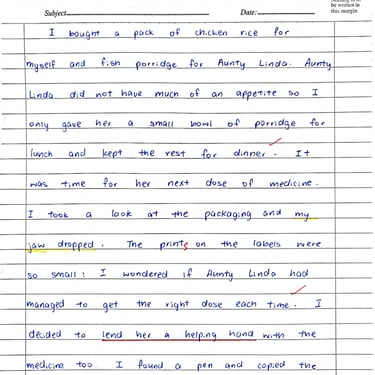 be written in
this margin.
Subject Date:
I bought a pack of chicken rice for
myself and fish porridge for Aunty Linda. Aunty
Linda did not have much of an appetite so I
only gave her a small bowl of porridge for
lunch and kept the rest for dinner. It
was time for her next dose of medicine.
I took a look at the packaging and my
jaw dropped. The prints on the labels were
so small! I wondered if Aunty Linda had
managed to get the right dose each time. I
decided to lend her a helping hand with the
medicine too. I found a pen and copied the